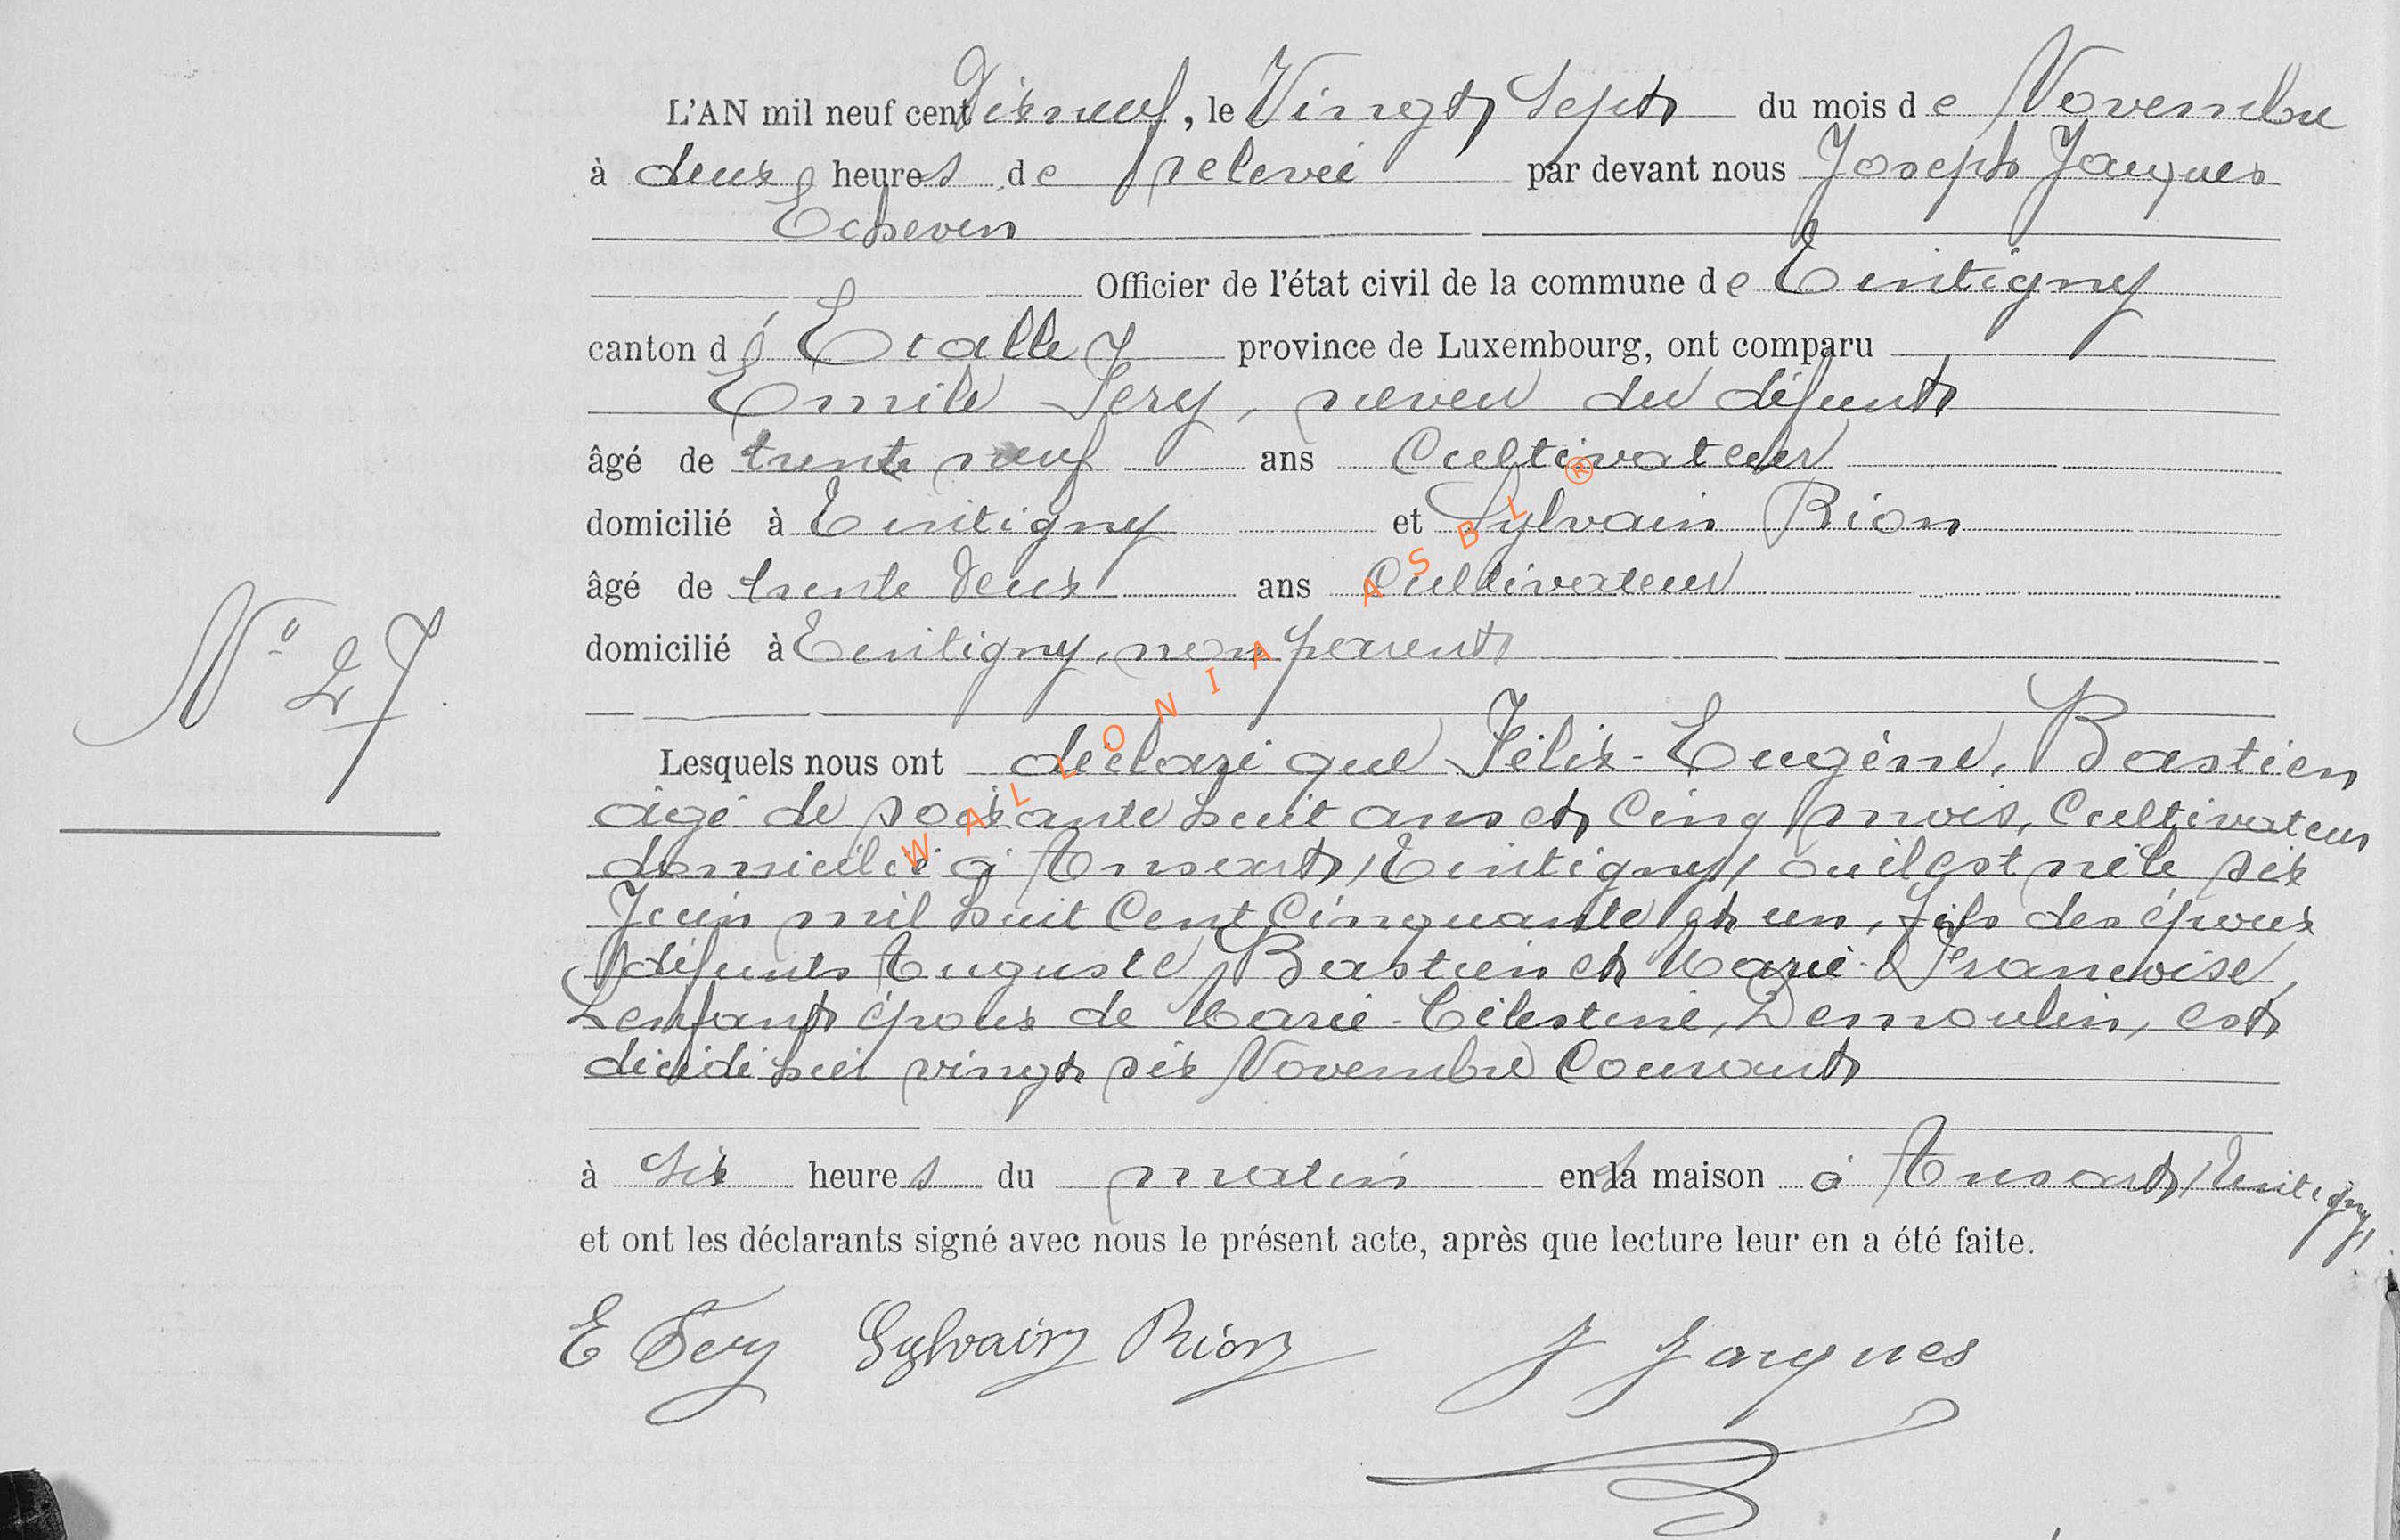 L'AN mil neuf cent Dixneuf, le Vingt Sept du mois de Novembre
à deux heures de relevée par devant nous Joseph Jacques
Echevin
Officier de l'état civil de la commune de Tintigny
canton d'Etalle province de Luxembourg, ont comparu
Emile Fery, neveu du défunt
âgé de trente neuf ans Cultivateur
domicilié à Tintigny et Sylvain Rion
âgé de trente deux ans Cultivateur
domicilié à Tintigny, non parent
N° 27
Lesquels nous ont déclaré que Félix-Eugène, Bastien
âgé de soixante huit ans et Cinq mois, Cultivateur
domicilié à Ansart /Tintigny/ où il est né le six
Juin mil huit Cent Cinquante et un, fils des époux
défunts Auguste, Bastien et Marie-Françoise,
Lenfant époux de Marie-Célestine, Demoulin, est
décédé hier vingt six Novembre Courant
à Six heures du matin en sa maison à Ansart /Tintigny/
et ont les déclarants signé avec nous le présent acte, après que lecture leur en a été faite.
E Fery Sylvain Rion J Jacques
WALLONIA ASBL ®